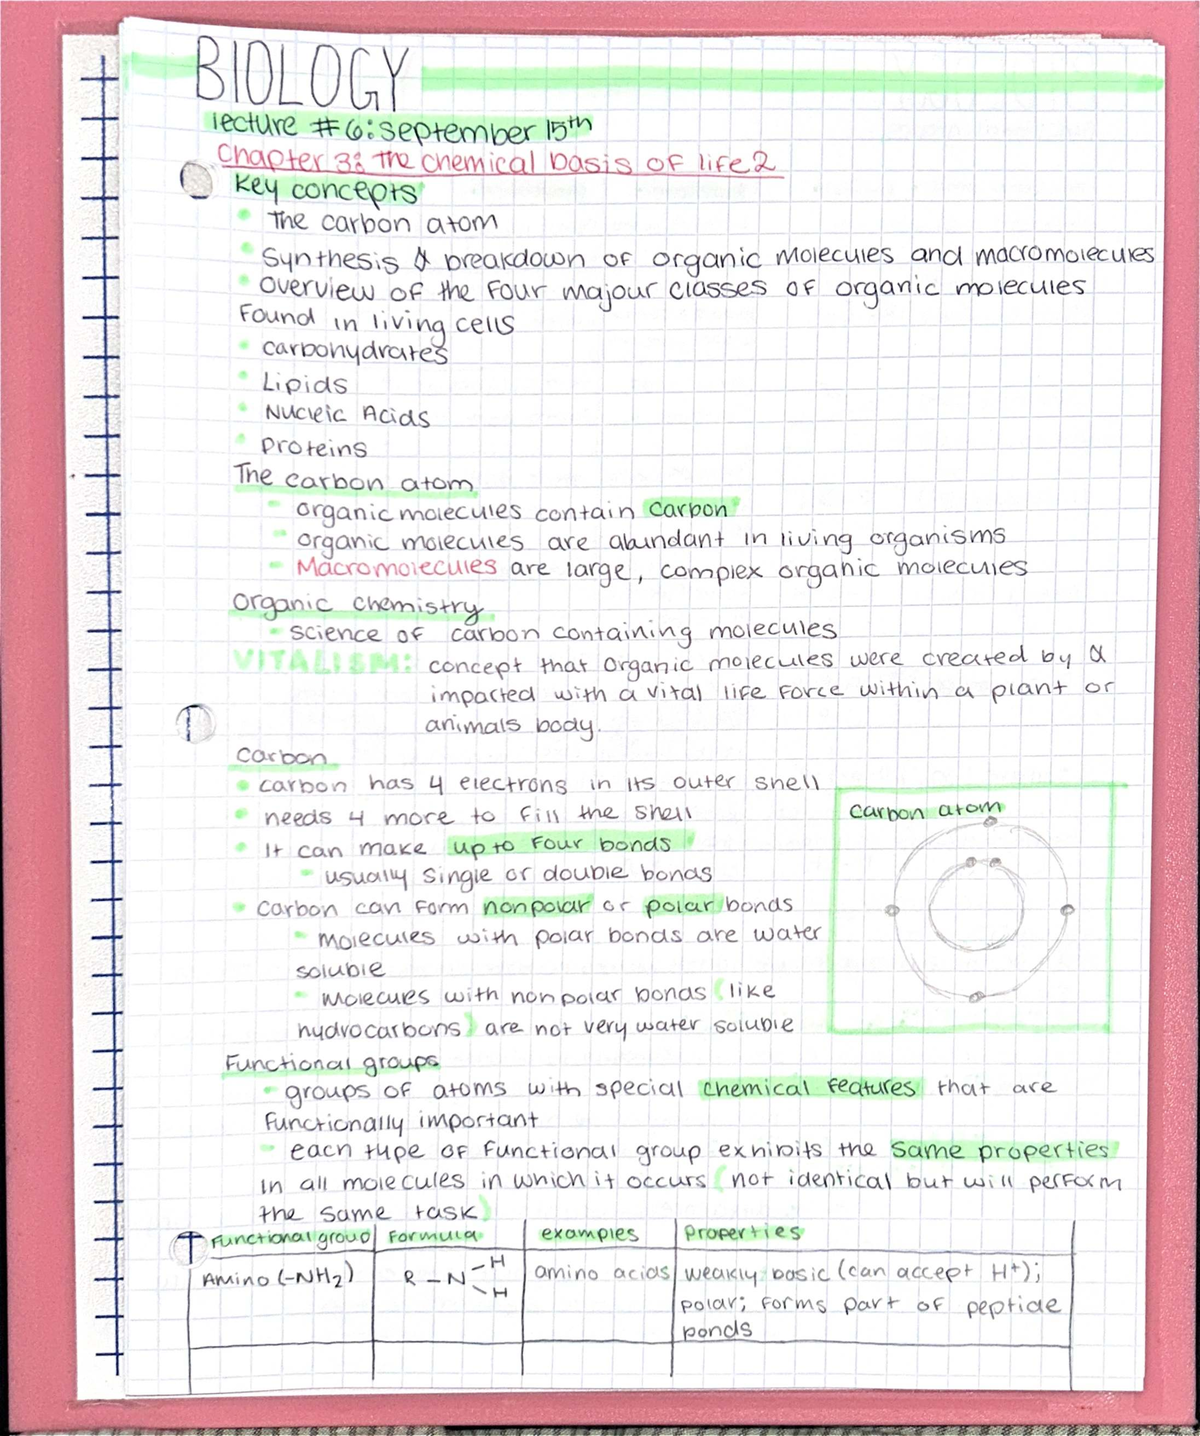 BIOLOGY
lecture #6: september 15th
Chapter 3: The chemical basis of life 2
Key concepts
• The carbon atom
• Synthesis & breakdown of organic molecules and macromolecules
• overview of the four majour classes of organic molecules
Found in living cells
• carbohydrates
• Lipids
• Nucleic Acids
• proteins
The carbon atom
- organic molecules contain carbon
- organic molecules are abundant in living organisms
- Macromolecules are large, complex organic molecules
Organic chemistry
- science of carbon containing molecules
VITALISM: concept that organic molecules were created by &
imparted with a vital life force within a plant or
animals body.
Carbon
• carbon has 4 electrons in its outer shell
• needs 4 more to fill the shell
• It can make up to four bonds
- usually single or double bonds
• carbon can form nonpolar or polar bonds
- molecules with polar bonds are water
soluble
- molecues with nonpolar bonds (like
hydrocarbons) are not very water soluble
Carbon atom
Functional groups
- groups of atoms with special chemical features that are
functionally important
- each type of functional group exhibits the same properties
in all molecules in which it occurs (not identical but will perform
the same task)
Functional group Formula examples Properties
Amino (-NH2) R-N-H amino acids weakly basic (can accept H+);
H polar; forms part of peptide
bonds